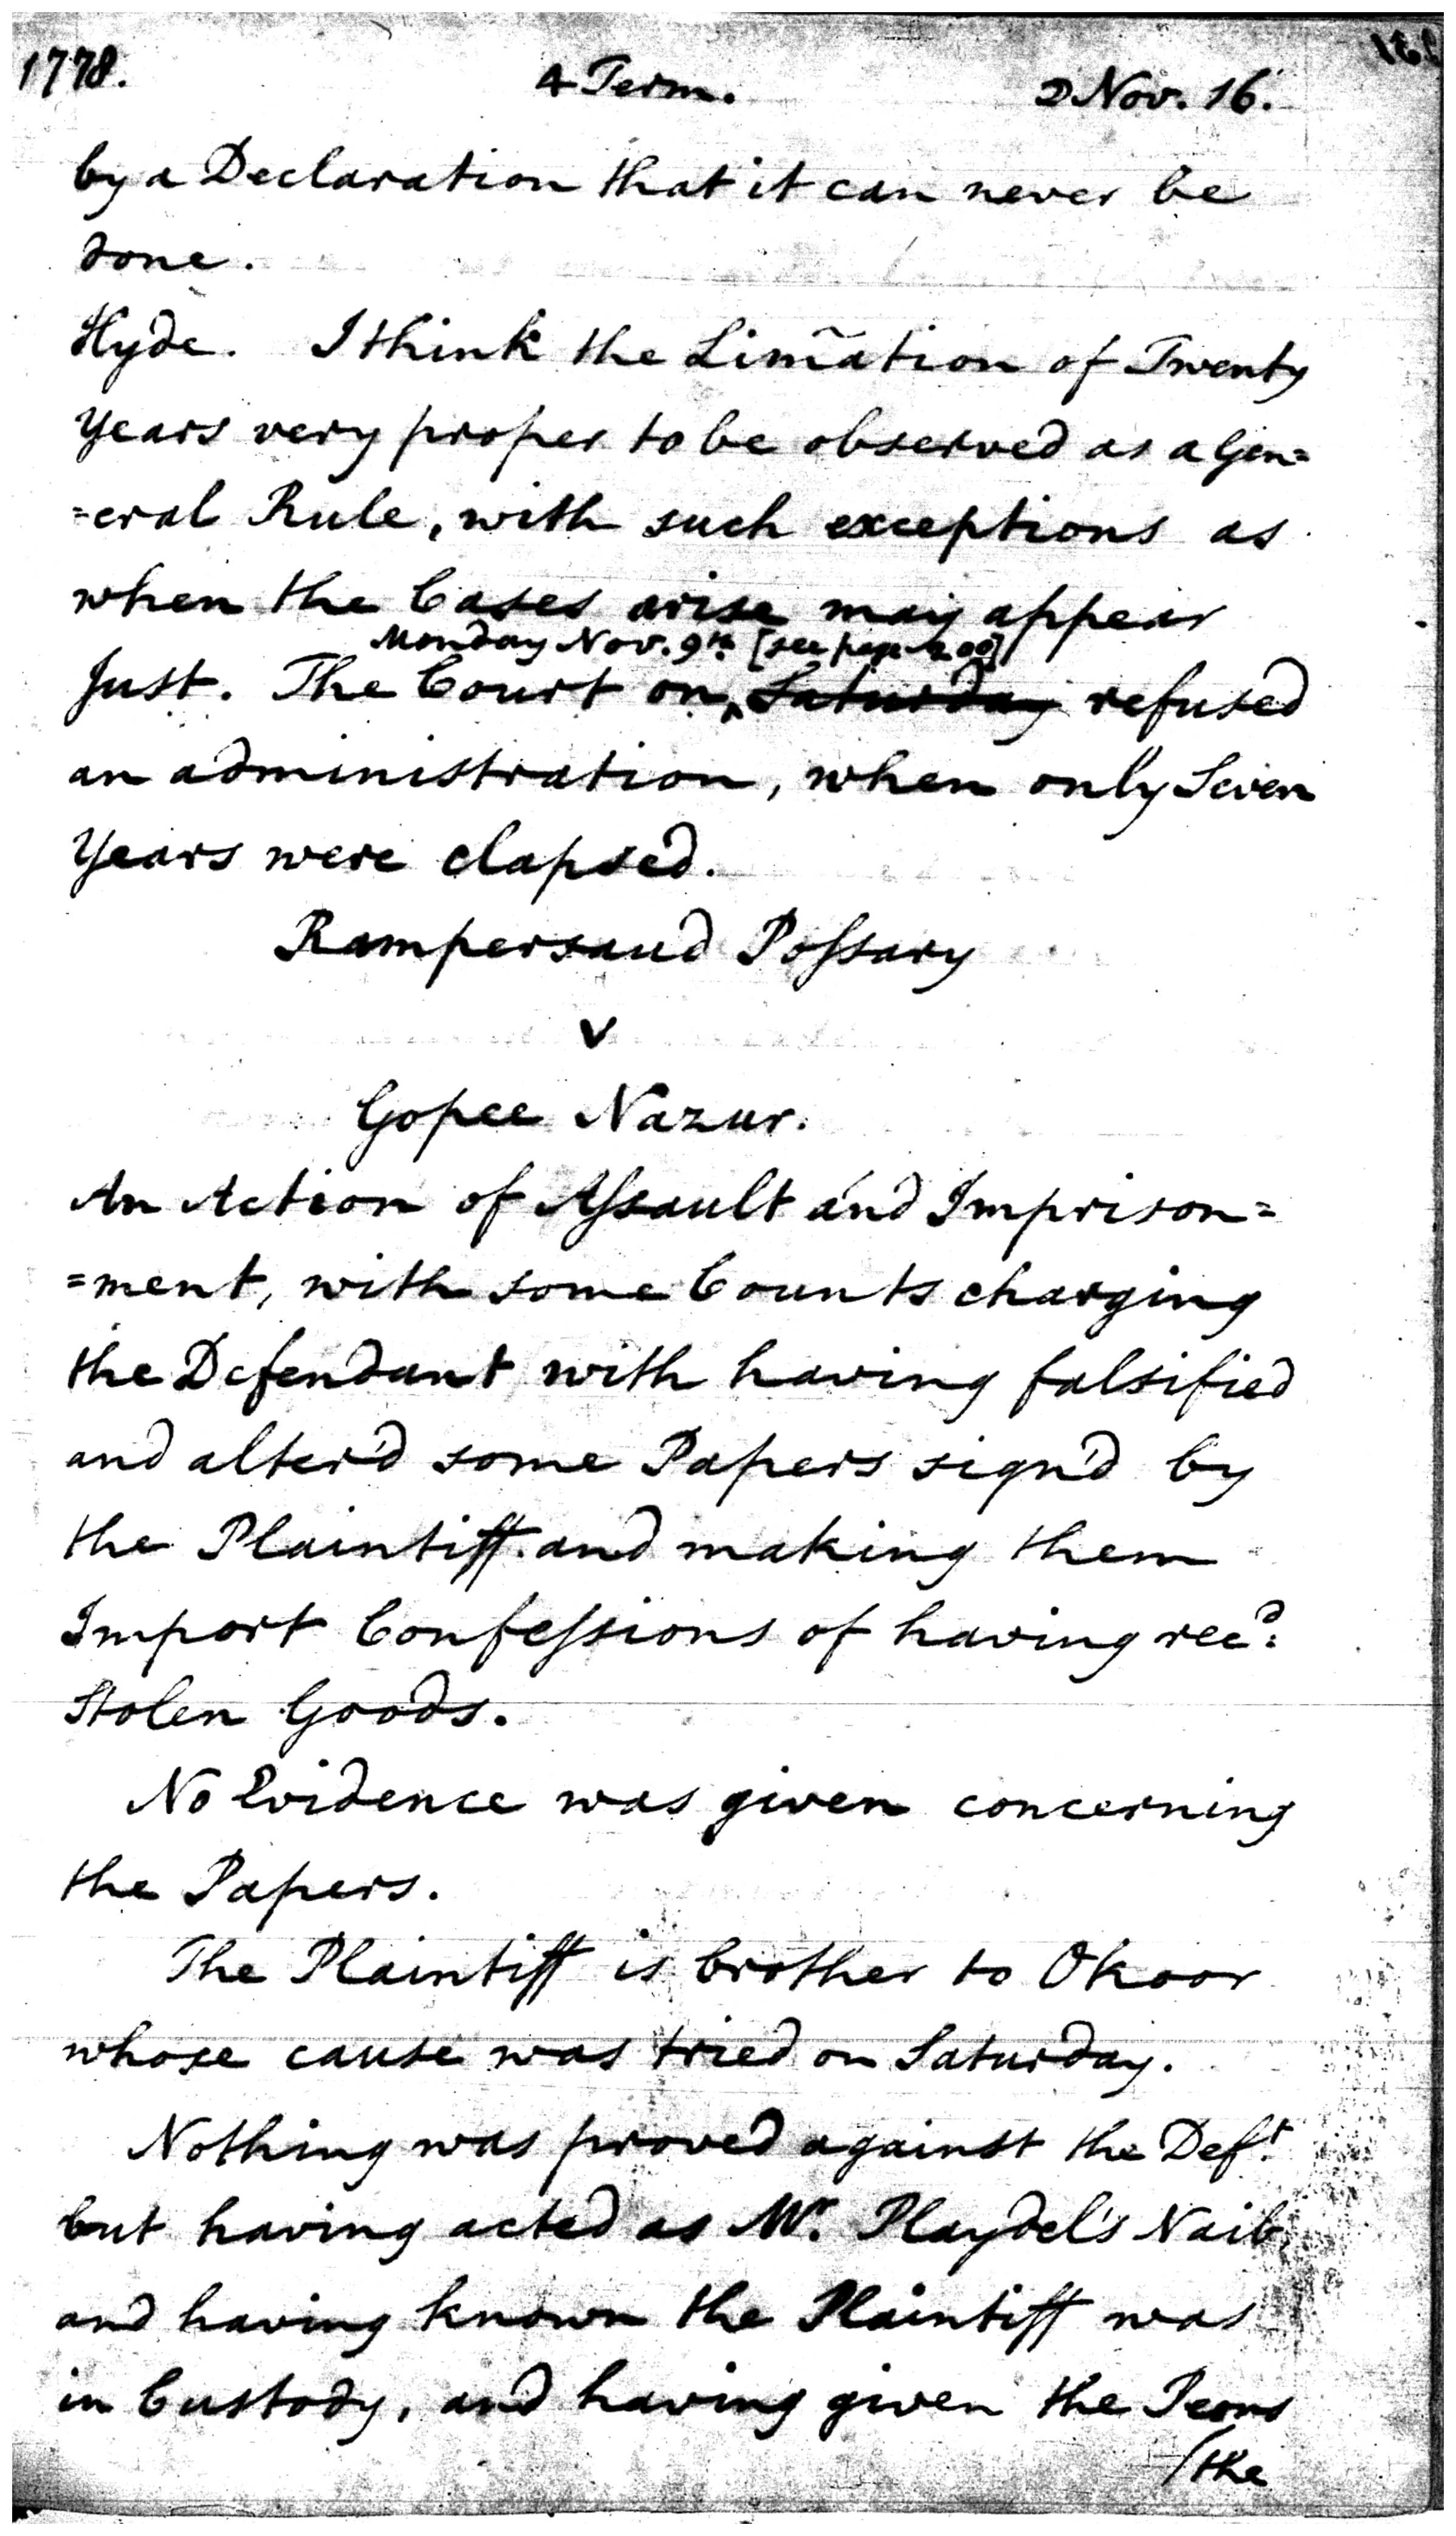 1778. 4 Term. ☽ Nov. 16.
by a Declaration that it can never be
done.
Hyde. I think the Lim̃ation of Twenty
Years very proper to be observed as a Gen=
=eral Rule, with such exceptions as
when the Cases arise may appear
Monday Nov. 9th. [see page 200]
Just. The Court on ‸ Saturday refused
an administration, when only Seven
Years were elapsed.
Rampersaud Poſsary
v
Gopee Nazur.
An Action of Aſsault and Imprison=
=ment, with some Counts charging
the Defendant with having falsified
and alter'd some Papers sign'd by
the Plaintiff and making them
Import Confeſsions of having rec.d
Stolen Goods.
No Evidence was given concerning
the Papers.
The Plaintiff is brother to Okoor
whose cause was tried on Saturday.
Nothing was proved against the Def.t
but having acted as Mr. Playdel's Naib,
and having known the Plaintiff was
in Custody, and having given the Peons
/the